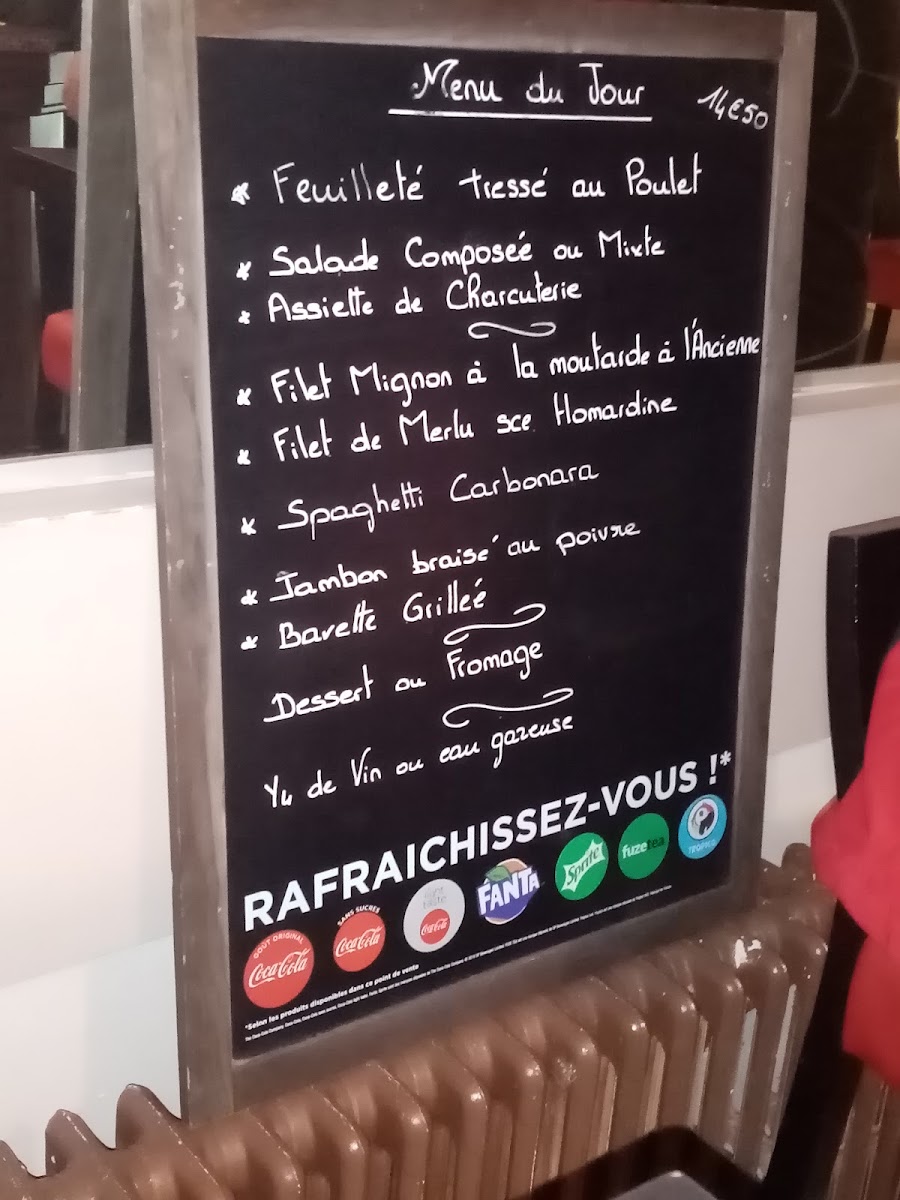 Menu du Jour
14€50
* Feuilleté tressé au Poulet
* Salade Composeé ou Mixte
* Assiette de Charcuterie
* Filet Mignon à la moutarde à l'Ancienne
* Filet de Merlu sce Homardine
* Spaghetti Carbonara
* Jambon braisé au poivre
* Bavette Grilleé
Dessert ou Fromage
1/4 de Vin ou eau gazeuse
RAFRAICHISSEZ-VOUS !*
GOÛT ORIGINAL
Coca-Cola
SANS SUCRES
Coca-Cola
light taste
Coca-Cola
FANTA
Sprite
fuzetea
TROPICO
*Selon les produits disponibles dans ce point de vente